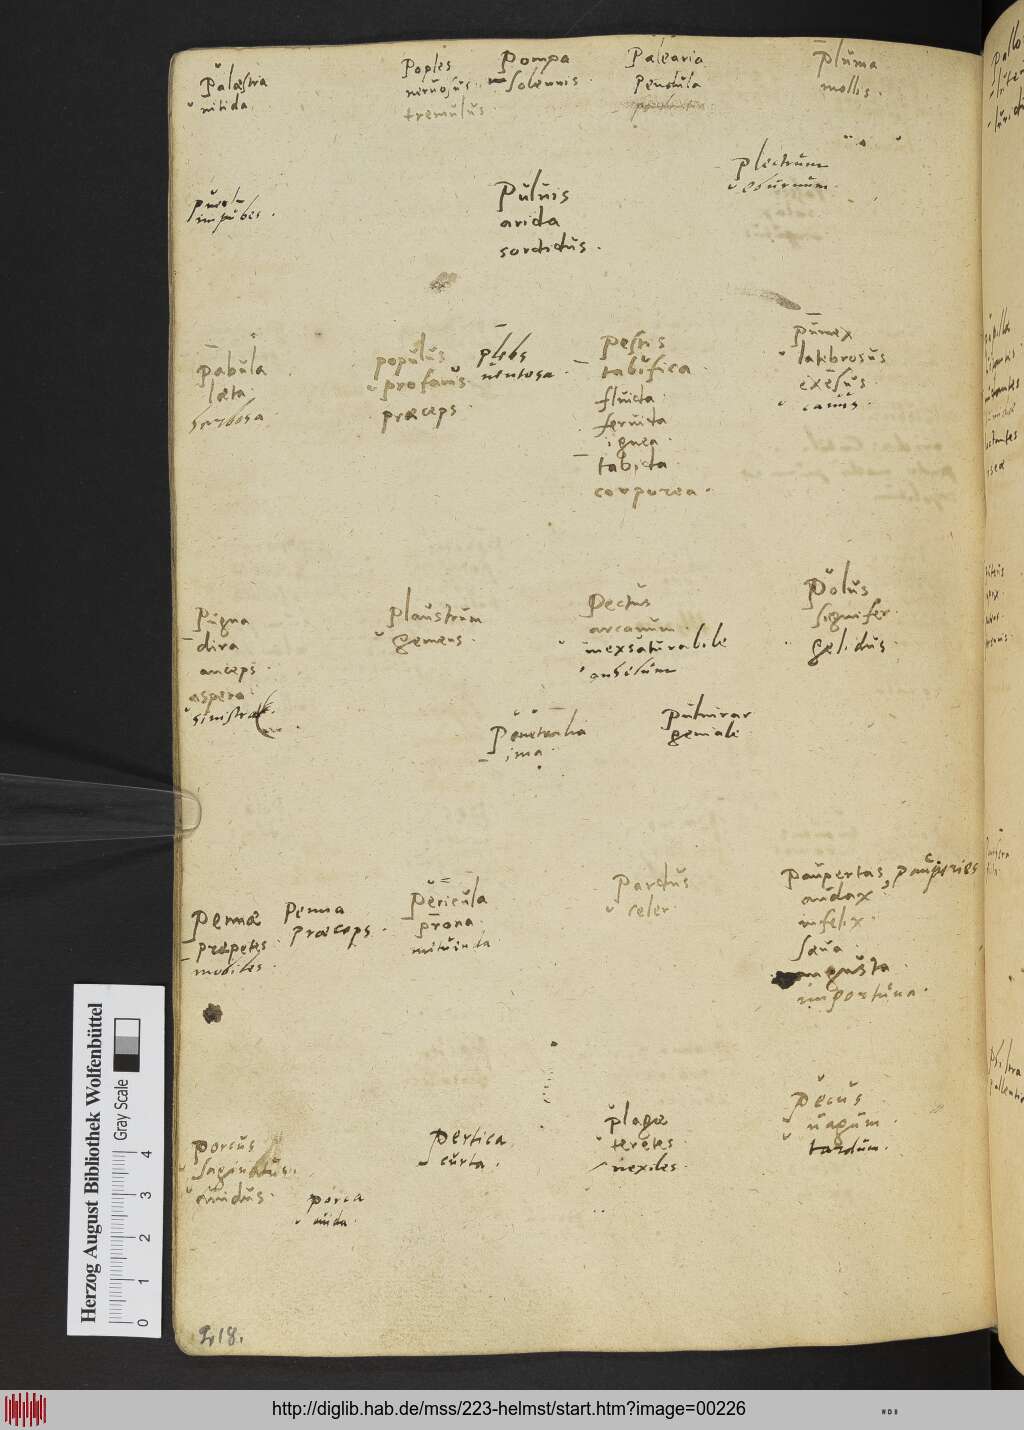 Palæstra
nitida
Poples
neruosus
tremulus
Pompa
solennis
Palearia
Pendula
Pluma
mollis.
Plectrum
eburnum.
impubes.
Puluis
arida
sordidus.
pabula
læta
herbosa
populus
profanus
præceps
plebs
uentosa.
Pestis
tabifica
fluida
feruida
ignea
tabida
corporea.
pumex
latebrosus
exēsus
cauus.
Pugna
dira
anceps
aspera
sinistra
plaustrum
gemens.
Pectus
arcanum.
inexsaturabile
anhelum
Polus
signifer
gelidus.
Penetralia
ima
puluinar
geniale
pennæ
præpetes
mobiles.
Penna
præceps.
pericula
prona
metuenda
Pardus
celer.
paupertas, pauperies
audax
infelix.
sæua
angusta
importuna.
porcus
saginatus.
auidus.
porca
auida.
pertica
curta.
plagæ
teretes
nexiles.
pecus
uagum.
tardum.
218.
Herzog August Bibliothek Wolfenbüttel
Gray Scale
0 1 2 3 4
http://diglib.hab.de/mss/223-helmst/start.htm?image=00226